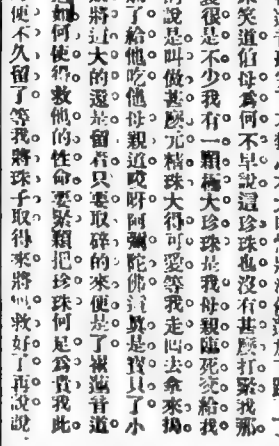 來笑道伯母爲何不早說這珍珠也沒有甚麽打緊我那
裏很是不少我有一顆極大珍珠是我母親臨死交給我
說是叫做甚麽元精珠大得可愛等我走回去拿來搗
了給他吃他母親道哎呀阿彌陀佛這眞是寶貝了小
將這大的還是留着只要取碎的來便是了襯遐音道
如何使得救他的性命要緊顆把珍珠何足爲貴我此
便不久留了等我將珠子取得來將 救好了再說說